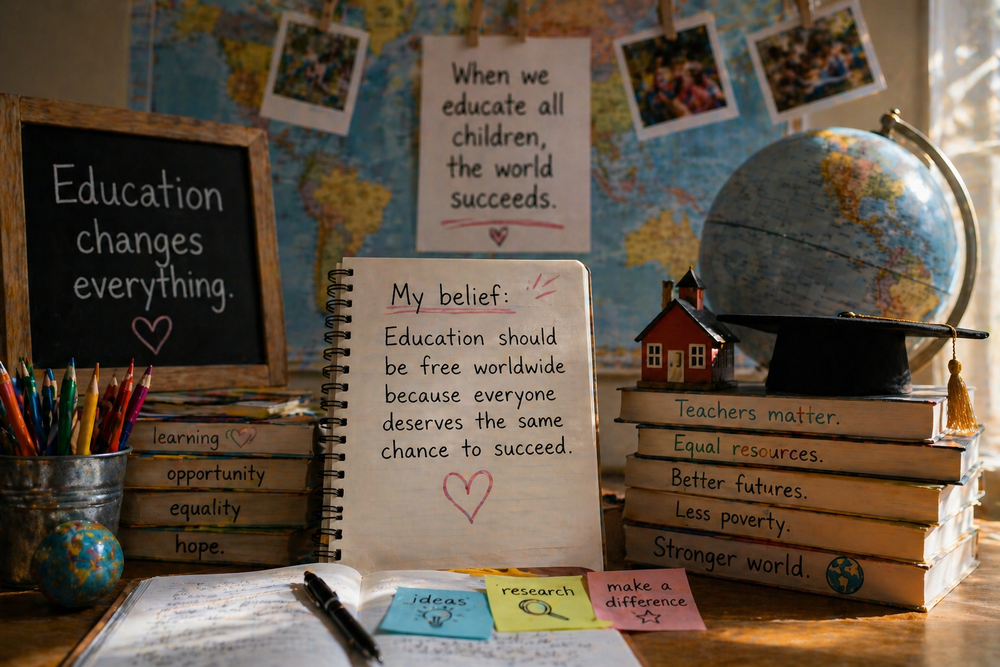 Education
changes
everything.
When we
educate all
children,
the world
succeeds.
My belief:
Education should
be free worldwide
because everyone
deserves the same
chance to succeed.
learning
opportunity
equality
hope.
Teachers matter.
Equal resources.
Better futures.
Less poverty.
Stronger world.
ideas
research
make a
difference